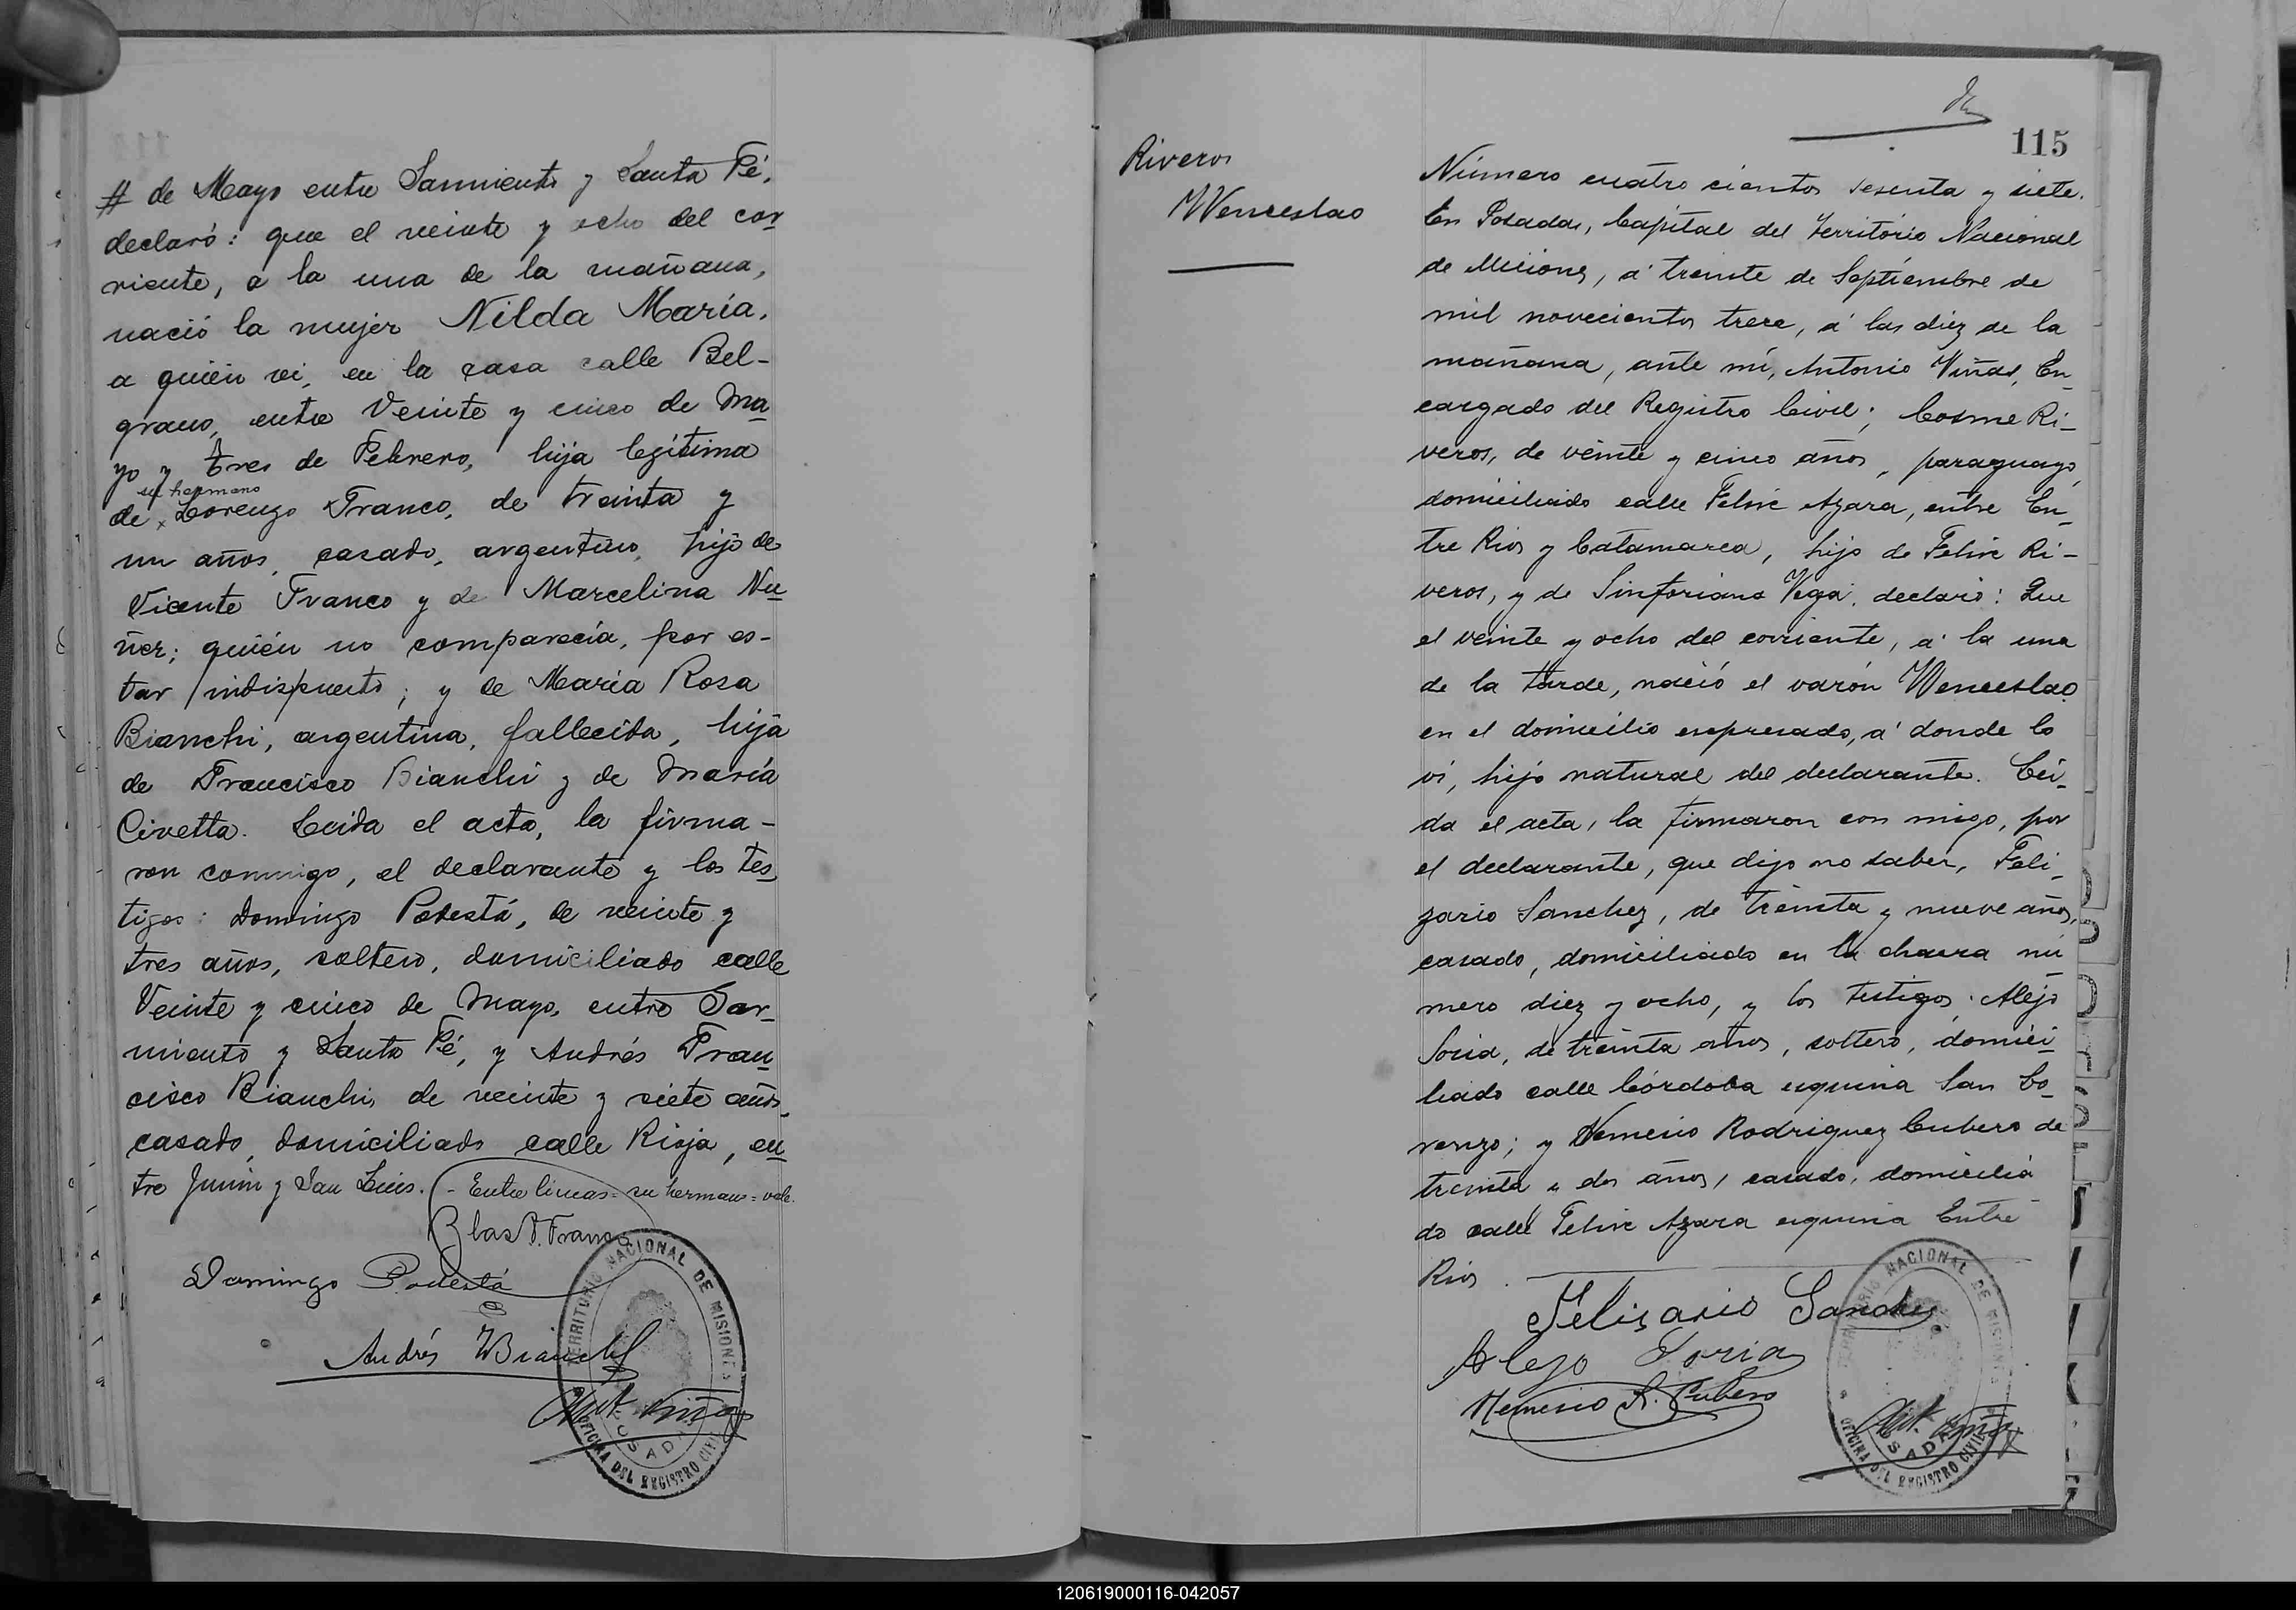 # de Mayo entre Sarmiento y Santa Fé,
declaró: que el veinte y ocho del cor
riente, a la una de la mañana,
nació la mujer Nilda María,
a quién vi, en la casa calle Bel-
grano, entre Veinte y cinco de Ma
yo y Tres de Febrero, hija legítima
su hermano
de x Lorenzo Franco, de treinta y
un años, casado, argentino, hijo de
Vicente Franco y de Marcelina Nu
ñez; quién no comparecía, por es-
tar indispuesto; y de María Rosa
Bianchi, argentina, fallecida, hija
de Francisco Bianchi y de María
Civetta. Leida el acta, la firma-
ron conmigo, el declarante y los tes
tigos: Domingo Podestá, de veinte y
tres años, soltero, domiciliado calle
Veinte y cinco de Mayo, entre Sar-
miento y Santa Fé, y Andrés Fran
cisco Bianchi, de veinte y siete años,
casado, domiciliado calle Rioja, en
tre Junin y San Luis. - Entre lineas = su hermano = vale.
Blas A. Franco
Domingo Podestá
Andrés Bianchi
Ant. Viñas
TERRITORIO NACIONAL DE MISIONES
POSADAS
OFICINA DEL REGISTRO CIVIL
115
Riveros
Wenceslao
Número cuatro cientos sesenta y siete.
En Posadas, Capital del Territorio Nacional
de Misiones, á treinta de Septiembre de
mil novecientos trece, á las diez de la
mañana, ante mí, Antonio Viñas, En
cargado del Registro Civil; Cosme Ri-
veros, de veinte y cinco años, paraguayo,
domiciliado calle Felix Azara, entre En
tre Rios y Catamarca, hijo de Felix Ri-
veros, y de Sinforiana Vega, declaró: Que
el veinte y ocho del corriente, á la una
de la tarde, nació el varón Wenceslao
en el domicilio expresado, á donde lo
vi, hijo natural del declarante. Lei-
da el acta, la firmaron con migo, por
el declarante, que dijo no saber, Feli-
zario Sanchez, de treinta y nueve años,
casado, domiciliado en la chacra nú
mero diez y ocho, y los testigos: Alejo
Soria, de treinta años, soltero, domici-
liado calle Córdoba esquina San Lo-
renzo; y Nemesio Rodriguez Cubero de
treinta y dos años, casado, domicilia
do calle Felix Azara esquina Entre
Rios.
Felizario Sanchez
Alejo Soria
Nemesio R. Cubero
Ant. Viñas
TERRITORIO NACIONAL DE MISIONES
POSADAS
OFICINA DEL REGISTRO CIVIL
120619000116-042057